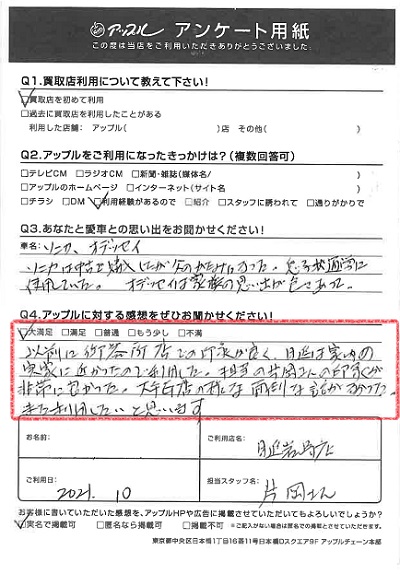 アップル アンケート用紙
この度は当店をご利用いただきありがとうございました。
Q1.買取店利用について教えて下さい!
買取店を初めて利用
□過去に買取店を利用したことがある
利用した店舗: アップル( )店 その他( )
Q2.アップルをご利用になったきっかけは?(複数回答可)
□テレビCM □ラジオCM □新聞・雑誌(媒体名/ )
□アップルのホームページ □インターネット(サイト名 )
□チラシ □DM 利用経験があるので □紹介 □スタッフに誘われて □通りがかりで
Q3.あなたと愛車との思い出をお聞かせください!
車名: ソニカ、オデッセイ
ソニカは中古で購入したが
使用していた。オデッセイは家族の思い出が
Q4.アップルに対する感想をぜひお聞かせください!
大満足 □満足 □普通 □もう少し □不満
以前に 店での印象が良く、
に近かったので利用した。担当の片岡さんの印象が
非常に良かった。大手店の様な面倒な話がなかった。
また利用したいと思います
お名前:
ご利用店名:
ご利用日:
2021. 10
担当スタッフ名:
片岡さん
お客様に書いていただいた感想を、アップルHPや広告に掲載させていただいてもよろしいでしょうか?
実名で掲載可 □匿名なら掲載可 □掲載不可 ※ご記入がない場合は匿名での掲載とさせていただきます。
東京都中央区日本橋1丁目16番11号日本橋Dスクエア9F アップルチェーン本部